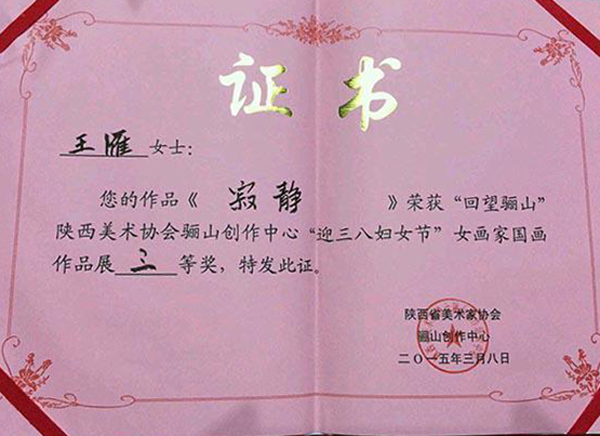 证书
王雁 女士：
您的作品《 寂静 》荣获“回望骊山”
陕西美术协会骊山创作中心“迎三八妇女节”女画家国画
作品展 三 等奖，特发此证。
陕西省美术家协会
骊山创作中心
二〇一五年三月八日